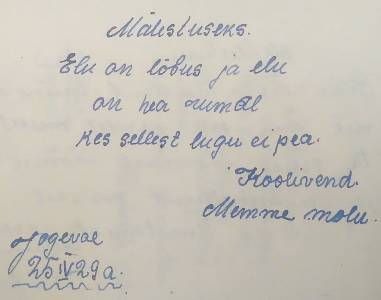 Mälestuseks.
Elu on lõbus ja elu
on hea rumal
kes sellest lugu ei pea.
Koolivend.
Memme molu.
Jõgeval
25 IV 29a.